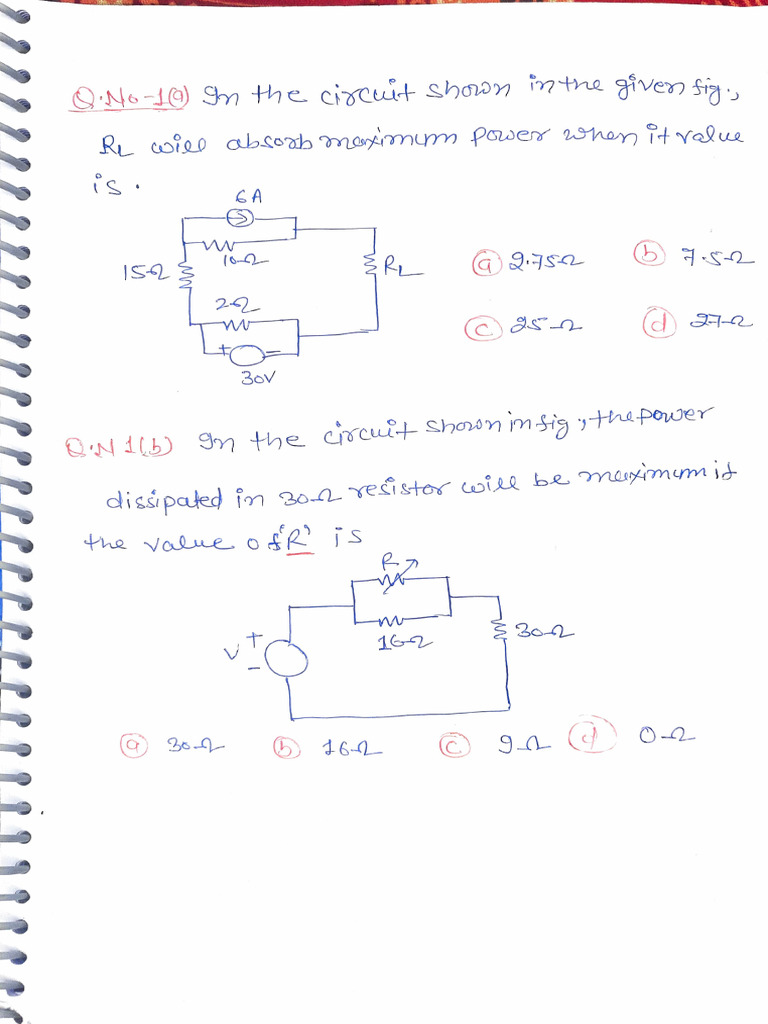 Q.No-1(a) In the circuit shown in the given fig.,
RL will absorb maximum power when it value
is.
6A
10Ω
15Ω
RL
2Ω
+ -
30V
(a) 2.75Ω (b) 7.5Ω
(c) 25Ω (d) 27Ω
Q.N 1(b) In the circuit shown in fig, the power
dissipated in 30Ω resistor will be maximum if
the value of 'R' is
R
16Ω
30Ω
V + -
(a) 30Ω (b) 16Ω (c) 9Ω (d) 0Ω